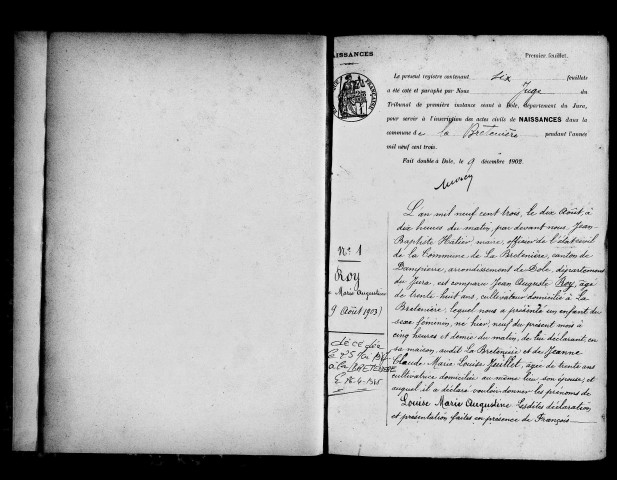 NAISSANCES
Premier feuillet.
Le present registre contenant six feuillets
a été coté et paraphé par Nous Juge du
Tribunal de première instance séant à Dole, département du Jura,
pour servir à l'inscription des actes civils de NAISSANCES dans la
commune de la Bretenière pendant l'année
mil neuf cent trois.
Fait double à Dole, le 9 décembre 1902.
L'an mil neuf cent trois, le dix Août, à
dix heures du matin, par devant nous Jean
Baptiste Hatier maire, officier de l'état civil
de la Commune de La Bretenière, canton de
Dampierre, arrondissement de Dole, département
du Jura, est comparu Jean Auguste Roy, âgé
de trente huit ans, cultivateur domicilié à La
Bretenière, lequel nous a présenté un enfant du
sexe féminin, né hier, neuf du présent mois à
cinq heures et demie du matin, de lui déclarant, en
sa maison, audit La Bretenière et de Jeanne
Claude Marie Louise Jeuillet, âgée de trente ans
cultivatrice domiciliée au même lieu son épouse, et
auquel il a déclaré vouloir donner les prénoms de
Louise Marie Augustine Lesdites déclaration
et présentation faites en présence de François
N° 1
Roy
Marie Augustine
9 Août 1903
décédée
à la BRETENIERE